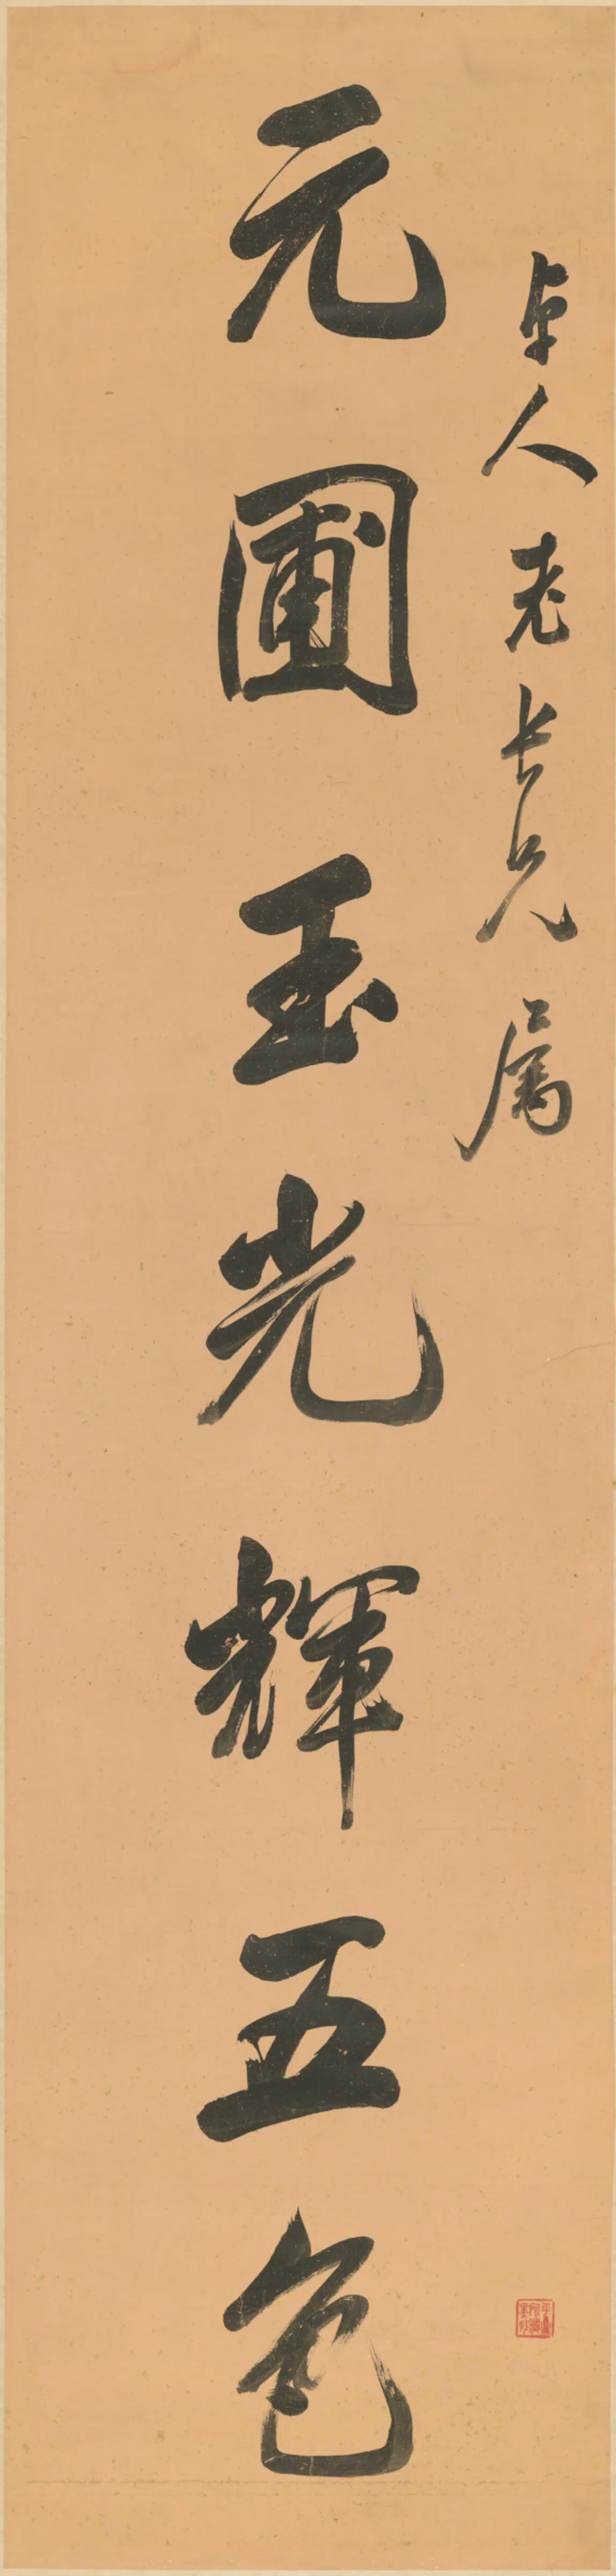 卓人老长兄属
元圃玉光輝五色